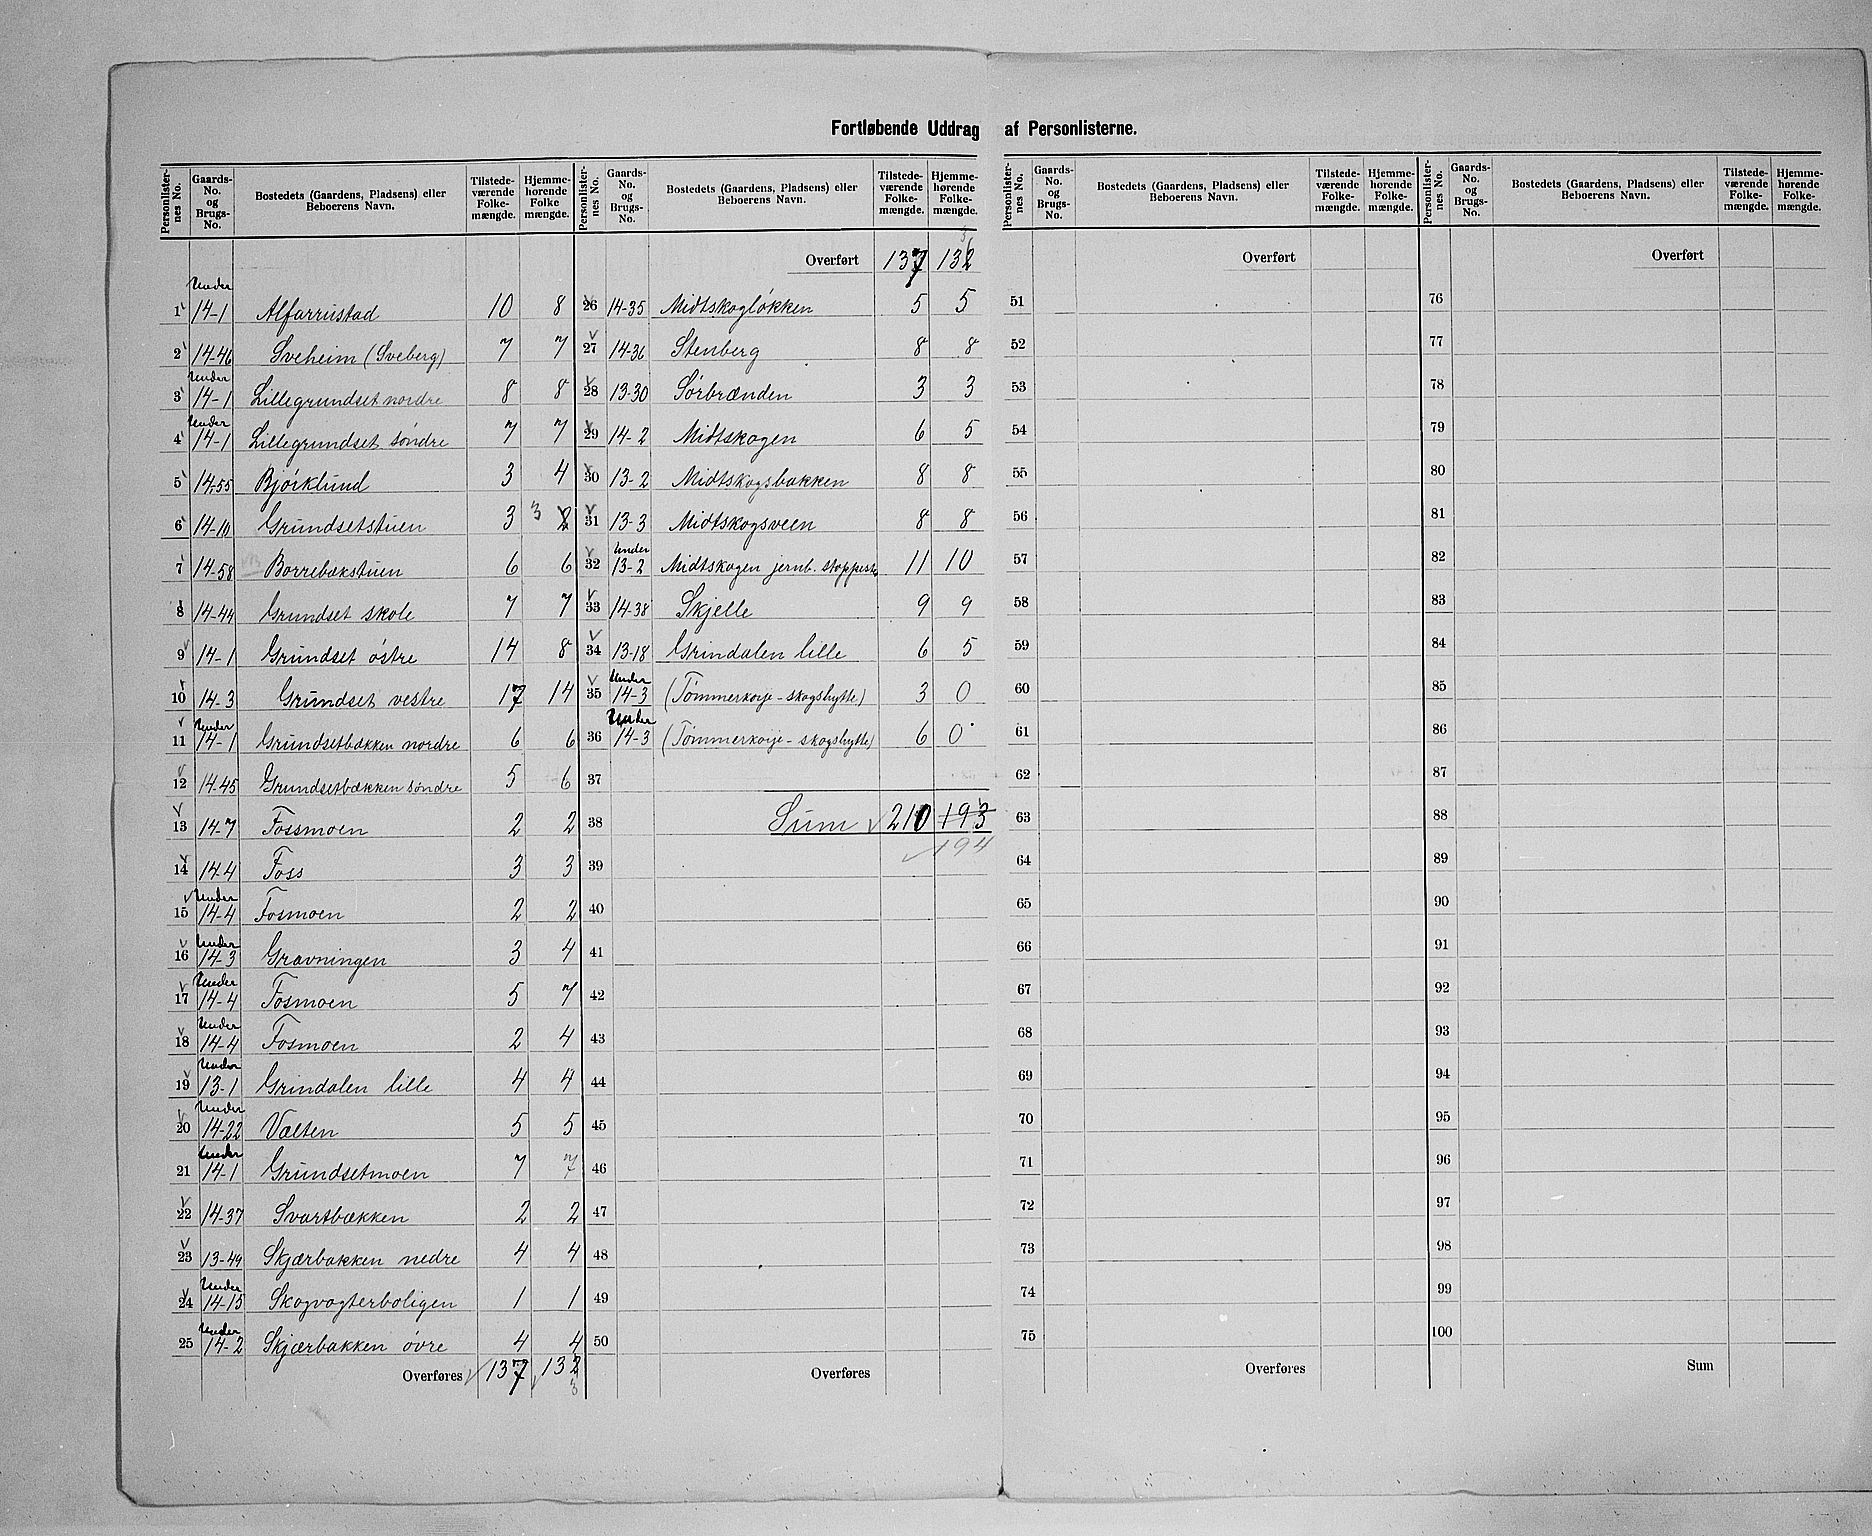 Fortløbende Uddrag af Personlisternes.
Personlisternes No. | Gaards-No. og Brugs-No. | Bostedets (Gaardens, Pladsens) eller Beboerens Navn. | Tilstedeværende Folkemængde. | Hjemmehørende Folkemængde.
1 | Under 14-1 | Alfarrustad | 10 | 8
2 | 14-46 | Sveheim (Sveberg) | 7 | 7
3 | Under 14-1 | Lillegrundset nordre | 8 | 8
4 | Under 14-1 | Lillegrundset søndre | 7 | 7
5 | 14,55 | Bjørklund | 3 | 4
6 | 14-10 | Grundsetstuen | 3 | 3 2
7 | 14-58 | Borrebækstuen | 6 | 6
8 | 14-44 | Grundset skole | 7 | 7
9 | 14-1 | Grundset østre | 14 | 8
10 | 14-3 | Grundset vestre | 17 | 14
11 | Under 14-1 | Grundsetbækken nordre | 6 | 6
12 | 14-45 | Grundsetbækken søndre | 5 | 6
13 | 14-7 | Fossmoen | 2 | 2
14 | 14-4 | Foss | 3 | 3
15 | Under 14-4 | Fosmoen | 2 | 2
16 | Under 14-3 | Gravningen | 3 | 4
17 | Under 14-4 | Fosmoen | 5 | 7
18 | Under 14-4 | Fosmoen | 2 | 4
19 | Under 13-1 | Grindalen lille | 4 | 4
20 | Under 14-22 | Vælten | 5 | 5
21 | Under 14-1 | Grundsetmoen | 7 | 7
22 | 14-37 | Svartbækken | 2 | 2
23 | 13-49 | Skjærbakken nedre | 4 | 4
24 | Under 14-15 | Skogvogterboligen | 1 | 1
25 | Under 14-2 | Skjærbakken øvre | 4 | 4
Overføres | 137 | 132 3
Personlisternes No. | Gaards-No. og Brugs-No. | Bostedets (Gaardens, Pladsens) eller Beboerens Navn. | Tilstedeværende Folkemængde. | Hjemmehørende Folkemængde.
Overført | 137 | 132 3
26 | 14-35 | Midtskogløkken | 5 | 5
27 | 14-36 | Stenberg | 8 | 8
28 | 13-30 | Sørbrænden | 3 | 3
29 | 14-2 | Midtskogen | 6 | 5
30 | 13-2 | Midtskogsbakken | 8 | 8
31 | 13-3 | Midtskogsveen | 8 | 8
32 | Under 13-2 | Midtskogen jernb. stoppest. | 11 | 10
33 | 14-38 | Skjelle | 9 | 9
34 | 13-18 | Grindalen lille | 6 | 5
35 | Under 14-3 | (Tømmerkoije - skogshytte) | 3 | 0
36 | Under 14-3 | (Tømmerkoije - skogshytte) | 6 | 0
37
38 | Sum | 210 | 193
194
39
40
41
42
43
44
45
46
47
48
49
50
Overføres
Personlisternes No. | Gaards-No. og Brugs-No. | Bostedets (Gaardens, Pladsens) eller Beboerens Navn. | Tilstedeværende Folkemængde. | Hjemmehørende Folkemængde.
Overført
51
52
53
54
55
56
57
58
59
60
61
62
63
64
65
66
67
68
69
70
71
72
73
74
75
Overføres
Personlisternes No. | Gaards-No. og Brugs-No. | Bostedets (Gaardens, Pladsens) eller Beboerens Navn. | Tilstedeværende Folkemængde. | Hjemmehørende Folkemængde.
Overført
76
77
78
79
80
81
82
83
84
85
86
87
88
89
90
91
92
93
94
95
96
97
98
99
100
Sum